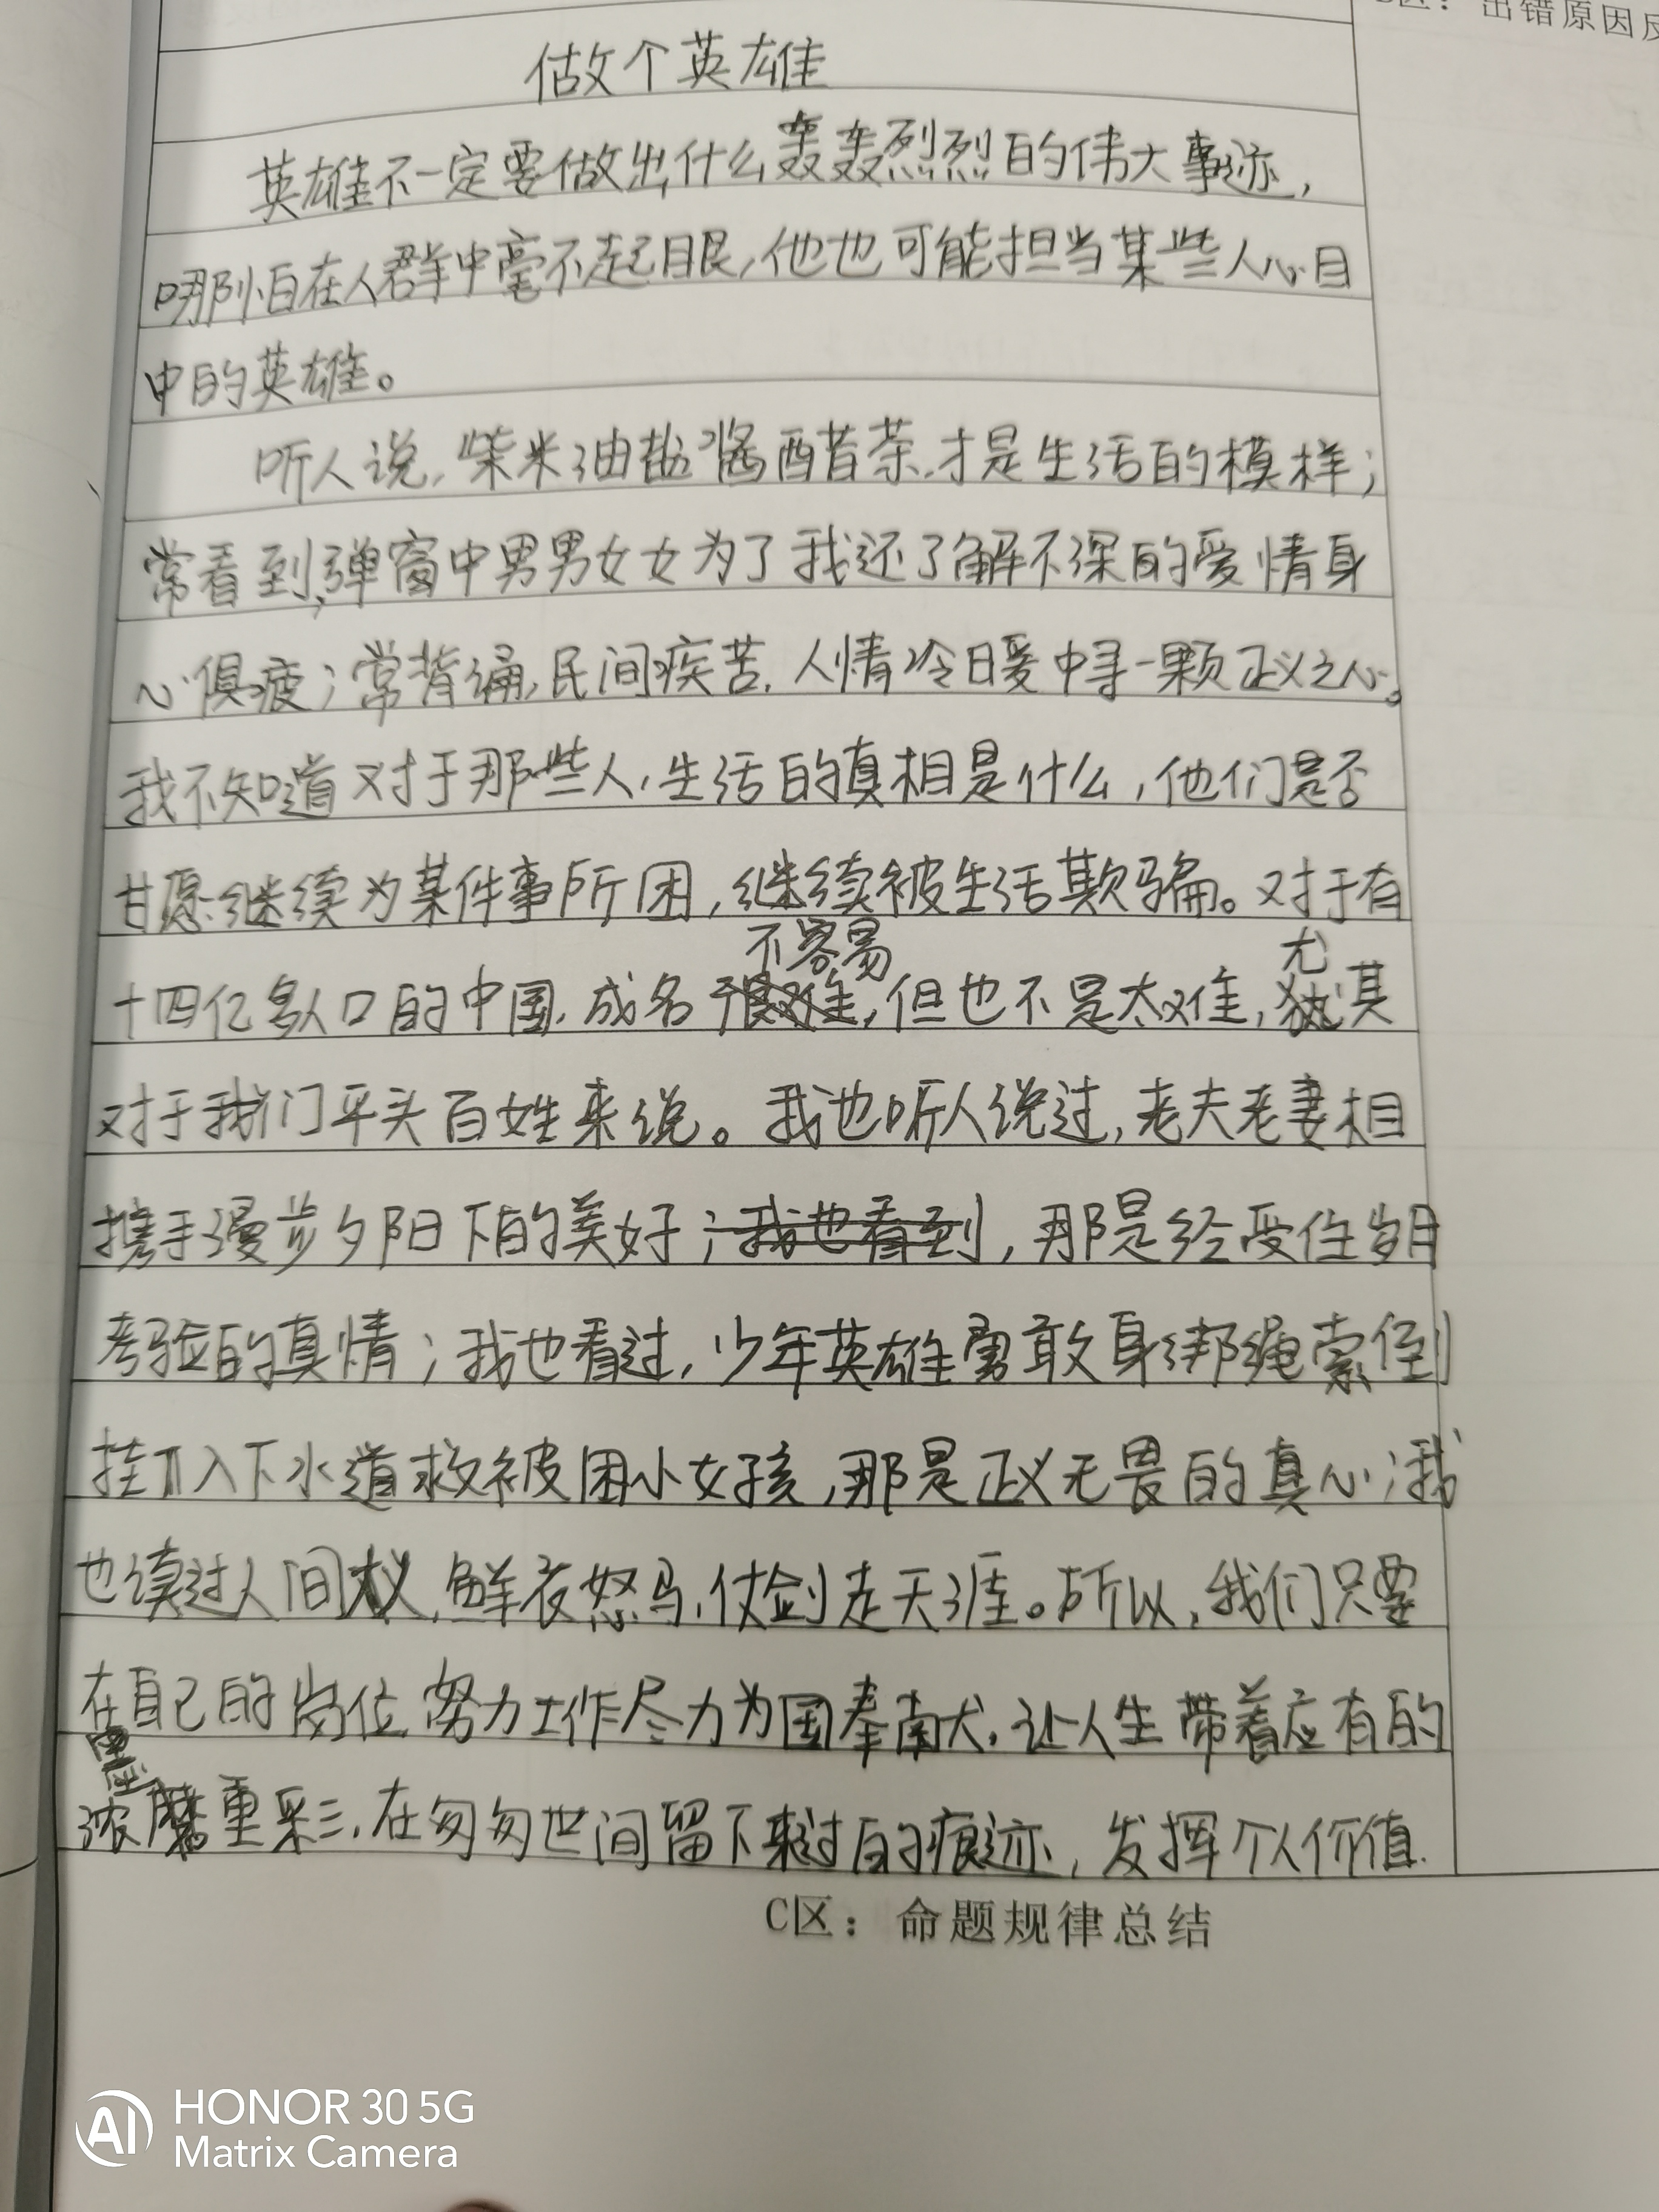 出错原因反
做个英雄
英雄不一定要做出什么轰轰烈烈的伟大事迹，
哪怕在人群中毫不起眼，他也可能担当某些人心目
中的英雄。
听人说，柴米油盐酱醋茶，才是生活的模样；
常看到，弹窗中男男女女为了我还了解不深的爱情身
心俱疲；常背诵，民间疾苦，人情冷暖中寻一颗正义之心。
我不知道对于那些人，生活的真相是什么，他们是否
甘愿继续为某件事所困，继续被生活欺骗。对于有
十四亿多人口的中国，成名不容易，但也不是太难，尤其
对于我们平头百姓来说。我也听人说过，老夫老妻相
携手漫步夕阳下的美好，那是经受住岁月
考验的真情；我也看过，少年英雄勇敢身绑绳索倒
挂入下水道救被困小女孩，那是正义无畏的真心；我
也读过人间，鲜衣怒马，仗剑走天涯。所以，我们只要
在自己的岗位，努力工作尽力为国奉献，让人生带着应有的
浓墨重彩，在匆匆世间留下来过的痕迹，发挥个人价值.
C区：命题规律总结
AI HONOR 30 5G
Matrix Camera